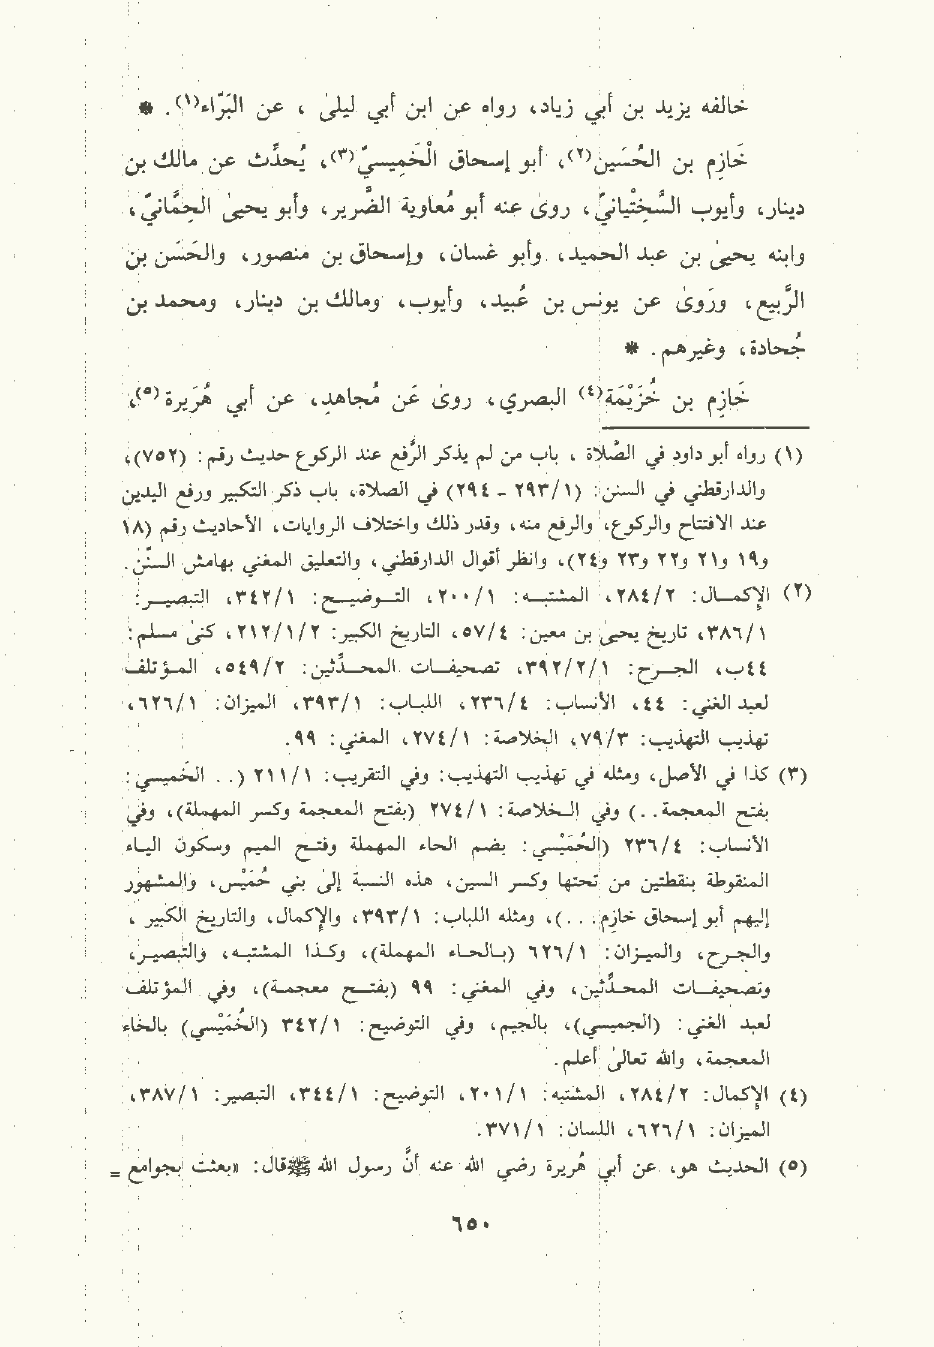 خالفه يزيد بن أبي زياد، رواه عن ابن أبي ليلىٰ ، عن البَرَّاء(١). *
خَازِم بن الحُسَين(٢)، أبو إسحاق الْخَمِيسيّ(٣)، يُحدِّث عن مالك بن
دينار، وأيوب السَّخِتْيانيّ، روىٰ عنه أبو مُعاوية الضَّرير، وأبو يحيىٰ الحِمَّانيّ،
وابنه يحيىٰ بن عبد الحميد، وأبو غسان، وإسحاق بن منصور، والحَسَن بن
الرَّبيع، ورَوىٰ عن يونس بن عُبيد، وأيوب، ومالك بن دينار، ومحمد بن
جُحادة، وغيرهم. *
خَازِم بن خُزَيْمَة(٤) البصري، روىٰ عَن مُجاهدِ، عن أبي هُرَيرة(٥)،
(١) رواه أبو داود في الصَّلاة ، باب من لم يذكر الرَّفع عند الركوع حديث رقم: (٧٥٢)،
والدارقطني في السنن: (١/٢٩٣ - ٢٩٤) في الصلاة، باب ذكر التكبير ورفع اليدين
عند الافتتاح والركوع، والرفع منه، وقدر ذلك واختلاف الروايات، الأحاديث رقم (١٨
و١٩ و٢١ و٢٢ و٢٣ و٢٤)، وانظر أقوال الدارقطني، والتعليق المغني بهامش السنَّن.
(٢) الإكمال: ٢/٢٨٤، المشتبه: ١/٢٠٠، التوضيح: ١/٣٤٢، التبصير:
١/٣٨٦، تاريخ يحيىٰ بن معين: ٤/٥٧، التاريخ الكبير: ٢/١/٢١٢، كنىٰ مسلم:
٤٤ب، الجرح: ١/٢/٣٩٢، تصحيفات المحدِّثين: ٢/٥٤٩، المؤتلف
لعبد الغني: ٤٤، الأنساب: ٤/٢٣٦، اللباب: ١/٣٩٣، الميزان: ١/٦٢٦،
تهذيب التهذيب: ٣/٧٩، الخلاصة: ١/٢٧٤، المغني: ٩٩.
(٣) كذا في الأصل، ومثله في تهذيب التهذيب: وفي التقريب: ١/٢١١ (.. الخَميسي:
بفتح المعجمة..) وفي الخلاصة: ١/٢٧٤ (بفتح المعجمة وكسر المهملة)، وفي
الأنساب: ٤/٢٣٦ (الحُمَيْسي: بضم الحاء المهملة وفتح الميم وسكون الياء
المنقوطة بنقطتين من تحتها وكسر السين، هذه النسبة إلىٰ بني حُمَيْس، والمشهور
إليهم أبو إسحاق خازم...)، ومثله اللباب: ١/٣٩٣، والإكمال، والتاريخ الكبير ،
والجرح، والميزان: ١/٦٢٦ (بالحاء المهملة)، وكذا المشتبه، والتبصير،
وتصحيفات المحدِّثين، وفي المغني: ٩٩ (بفتح معجمة)، وفي المؤتلف
لعبد الغني: (الجميسي)، بالجيم، وفي التوضيح: ١/٣٤٢ (الخُمَيْسي) بالخاء
المعجمة، والله تعالىٰ أعلم.
(٤) الإكمال: ٢/٢٨٤، المشتبه: ١/٢٠١، التوضيح: ١/٣٤٤، التبصير: ١/٣٨٧،
الميزان: ١/٦٢٦، اللسان: ١/٣٧١.
(٥) الحديث هو، عن أبي هُريرة رضي الله عنه أنَّ رسول الله ﷺ قال: «بعثت بجوامع =
٦٥٠